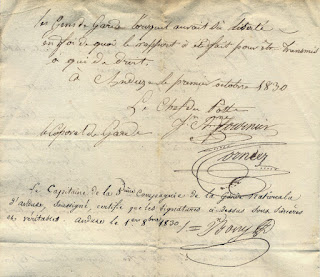 les Gens de Garde auroit été liberté
en foi de quoi le rapport a été fait pour être transmis
à qui de droit.
a Anduze le premier octobre 1830
Le Chef du Poste
le Caporal de Garde
Fournier
Le Capitaine de la 3ème Compagnie de la Garde Nationale
d'anduze, soussigné certifie que les signatures ci dessus sont sincères
et véritables. anduze le 1er 8bre 1830